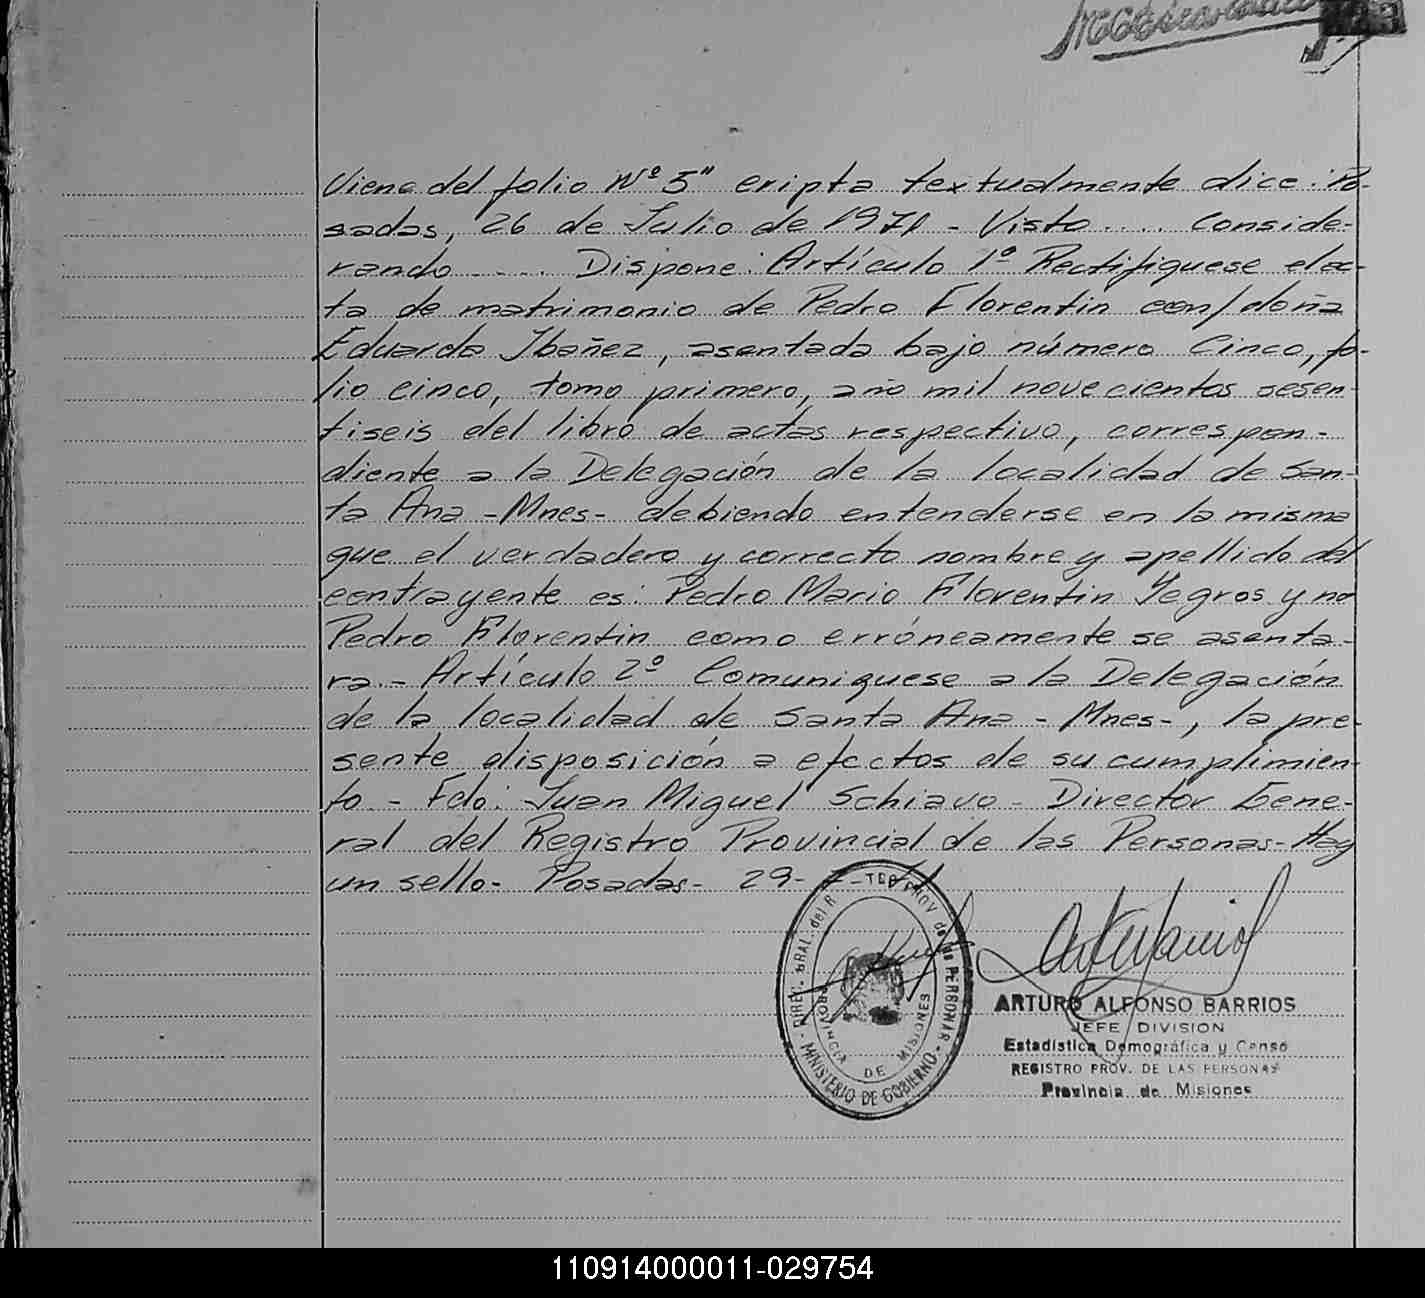 Viene del folio Nº 5" cripta textualmente dice: Po-
sadas, 26 de Julio de 1971 - Visto .... Conside-
rando .... Dispone: Artículo 1º Rectifiquese el ac-
ta de matrimonio de Pedro Florentin con/doña
Eduarda Ibañez, asentada bajo número Cinco, fo-
lio cinco, tomo primero, año mil novecientos sesen-
tiseis del libro de actas respectivo, correspon-
diente a la Delegación de la localidad de San-
ta Ana - Mnes - debiendo entenderse en la misma
que el verdadero y correcto nombre y apellido del
contrayente es: Pedro Mario Florentin Yegros y no
Pedro Florentin como erróneamente se asenta-
ra - Artículo 2º Comuniquese a la Delegación
de la localidad de Santa Ana - Mnes -, la pre-
sente disposición a efectos de su cumplimien-
to - Fdo: Juan Miguel Schiavo - Director Gene-
ral del Registro Provincial de las Personas - Hay
un sello - Posadas - 29-
DIREC. GRAL. del R TRO PROV de las PERSONAS
PROVINCIA DE MISIONES
MINISTERIO DE GOBIERNO
ARTURO ALFONSO BARRIOS
JEFE DIVISION
Estadística Demográfica y Censo
REGISTRO PROV. DE LAS PERSONAS
Provincia de Misiones
110914000011-029754